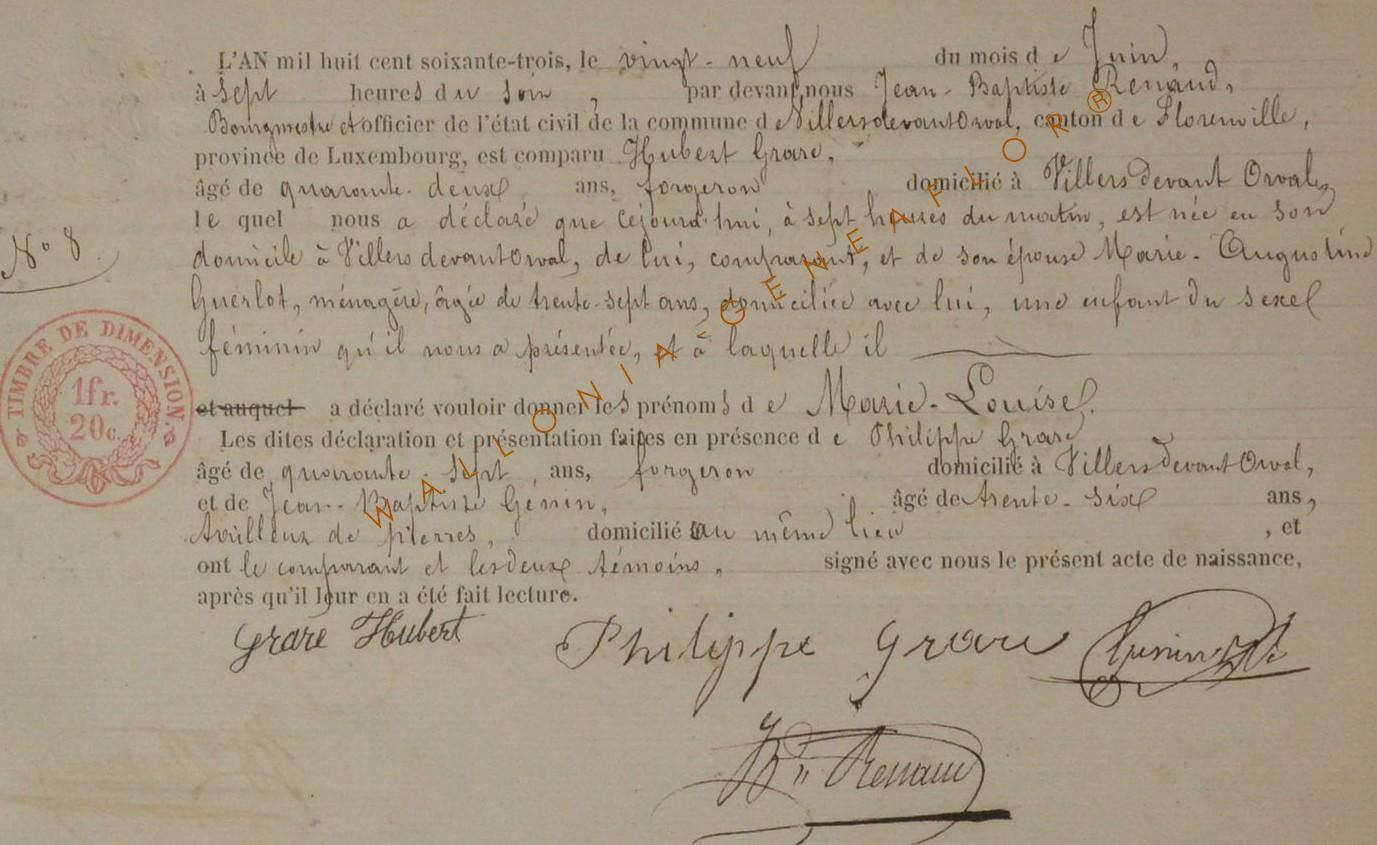 L'AN mil huit cent soixante-trois, le vingt-neuf du mois de Juin,
à sept heures du soir, par devant nous Jean-Baptiste Renaud,
Bourgmestre et officier de l'état civil de la commune de Villersdevantorval, canton de Florenville,
province de Luxembourg, est comparu Hubert Grare,
âgé de quarante-deux ans, forgeron domicilié à Villers devant Orval,
lequel nous a déclaré que cejourd'hui, à sept heures du matin, est née en son
N° 8
domicile à Villers devant orval, de lui, comparant, et de son épouse Marie-Augustine
Guerlot, ménagère, âgée de trente-sept ans, domiciliée avec lui, une enfant du sexe
féminin qu'il nous a présentée, et à laquelle il
et auquel a déclaré vouloir donner les prénoms de Marie-Louise.
TIMBRE DE DIMENSION.
1fr.
20c.
Les dites déclaration et présentation faites en présence de Philippe Grare
âgé de quarante-sept, ans, forgeron domicilié à Villers devant Orval,
et de Jean-Baptiste Genin, âgé de trente-six ans,
de pierres, domicilié au même lieu, et
ont le comparant et les deux témoins, signé avec nous le présent acte de naissance,
après qu'il leur en a été fait lecture.
Grare Hubert Philippe Grare Genin
Renaud
WALLONIA GENEAFLOR®